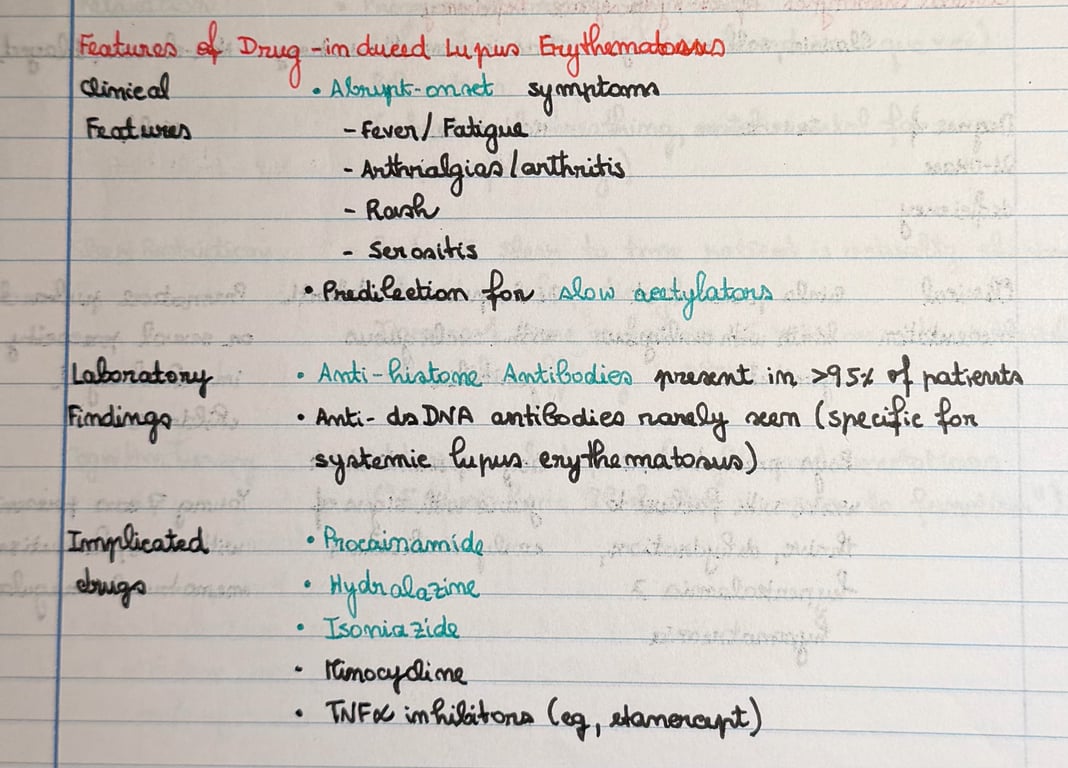 Features of Drug-induced Lupus Erythematosus
Clinical • Abrupt-onset symptoms
Features - Fever/Fatigue
- Arthrialgias/arthritis
- Rash
- Serositis
• Predilection for slow acetylators
Laboratory • Anti-histone Antibodies present in >95% of patients
Findings • Anti-dsDNA antibodies rarely seen (specific for
systemic lupus erythematosus)
Implicated • Procainamide
drugs • Hydralazine
• Isoniazide
• Minocycline
• TNFα inhibitors (eg, etanercept)